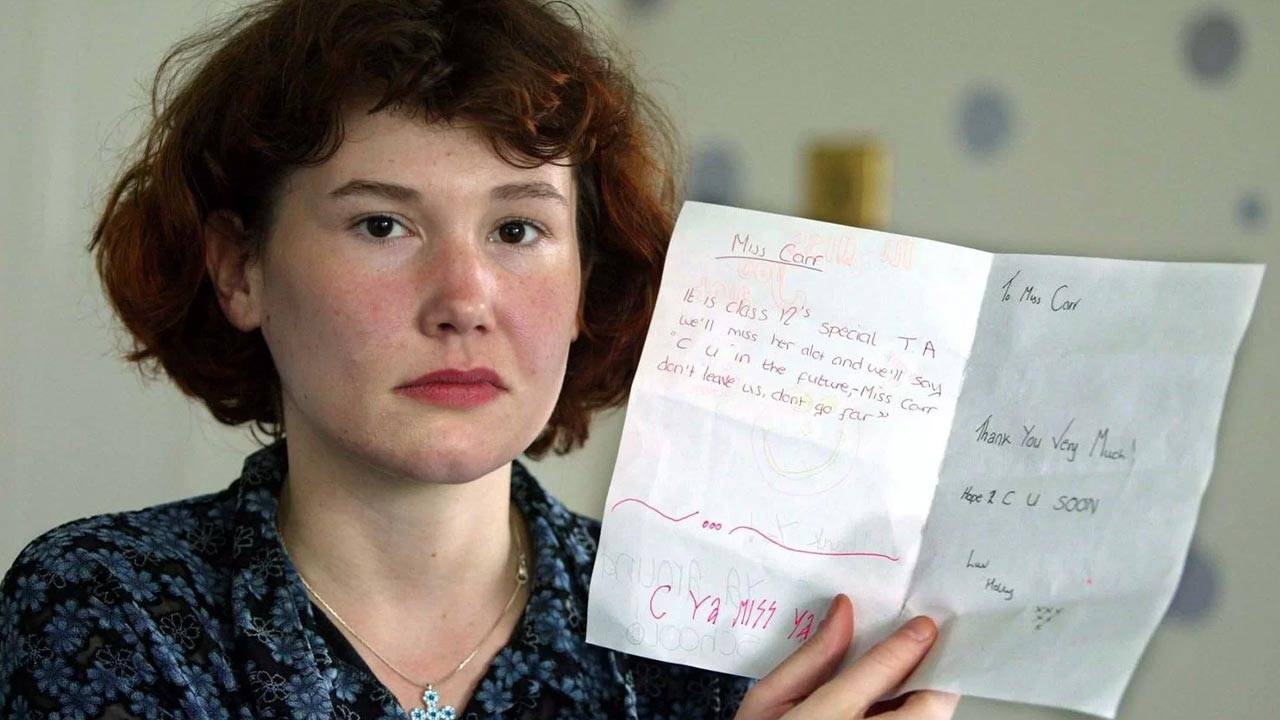 Miss Carr
It is class 12's special TA
we'll miss her alot and we'll say
"C U in the future,-Miss Carr
don't leave us, dont go far"
C Ya MISS Ya
To Miss Carr
Thank You Very Much!
Hope 2 C U SOON
Luv
xxx
x